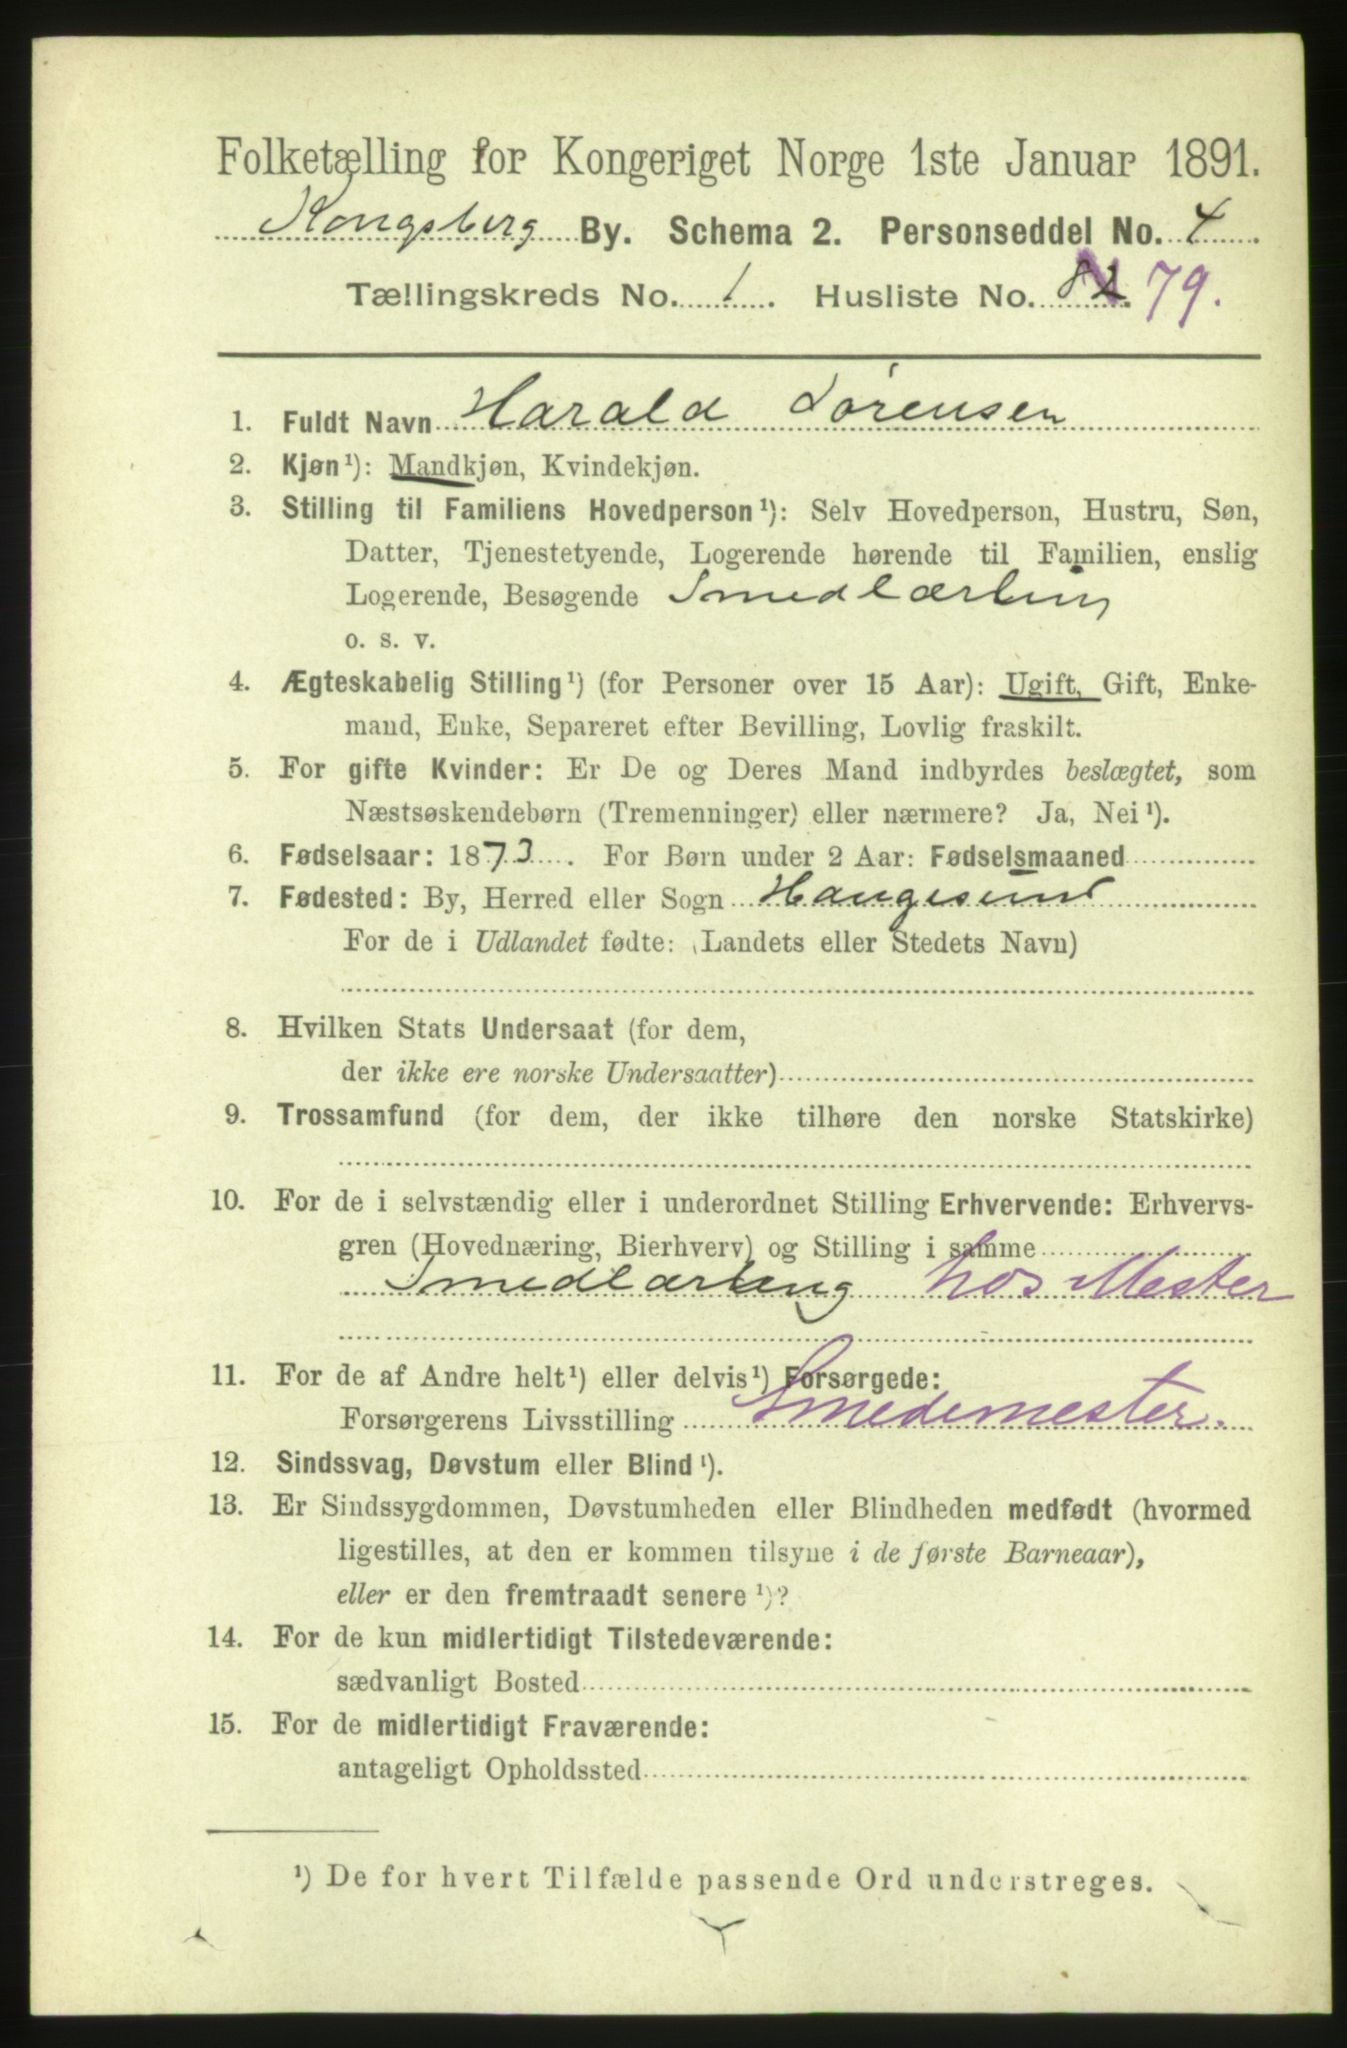 Folketælling for Kongeriget Norge 1ste Januar 1891.
Kongsberg By. Schema 2. Personseddel No. 4
Tællingskreds No. 1. Husliste No. 82. 79.
1. Fuldt Navn Harald Sörensen
2. Kjøn¹): Mandkjøn, Kvindekjøn.
3. Stilling til Familiens Hovedperson¹): Selv Hovedperson, Hustru, Søn,
Datter, Tjenestetyende, Logerende hørende til Familien, enslig
Logerende, Besøgende Smedlærling
o. s. v.
4. Ægteskabelig Stilling¹) (for Personer over 15 Aar): Ugift, Gift, Enke-
mand, Enke, Separeret efter Bevilling, Lovlig fraskilt.
5. For gifte Kvinder: Er De og Deres Mand indbyrdes beslægtet, som
Næstsøskendebørn (Tremenninger) eller nærmere? Ja, Nei¹).
6. Fødselsaar: 1873. For Børn under 2 Aar: Fødselsmaaned
7. Fødested: By, Herred eller Sogn Haugesund
For de i Udlandet fødte: (Landets eller Stedets Navn)
8. Hvilken Stats Undersaat (for dem,
der ikke ere norske Undersaatter)
9. Trossamfund (for dem, der ikke tilhøre den norske Statskirke)
10. For de i selvstændig eller i underordnet Stilling Erhvervende: Erhvervs-
gren (Hovednæring, Bierhverv) og Stilling i samme
Smedlærling hos Mester
11. For de af Andre helt¹) eller delvis¹) Forsørgede:
Forsørgerens Livsstilling Smedemester.
12. Sindssvag, Døvstum eller Blind¹).
13. Er Sindssygdommen, Døvstumheden eller Blindheden medfødt (hvormed
ligestilles, at den er kommen tilsyne i de første Barneaar),
eller er den fremtraadt senere¹)?
14. For de kun midlertidigt Tilstedeværende:
sædvanligt Bosted
15. For de midlertidigt Fraværende:
antageligt Opholdssted
¹) De for hvert Tilfælde passende Ord understreges.